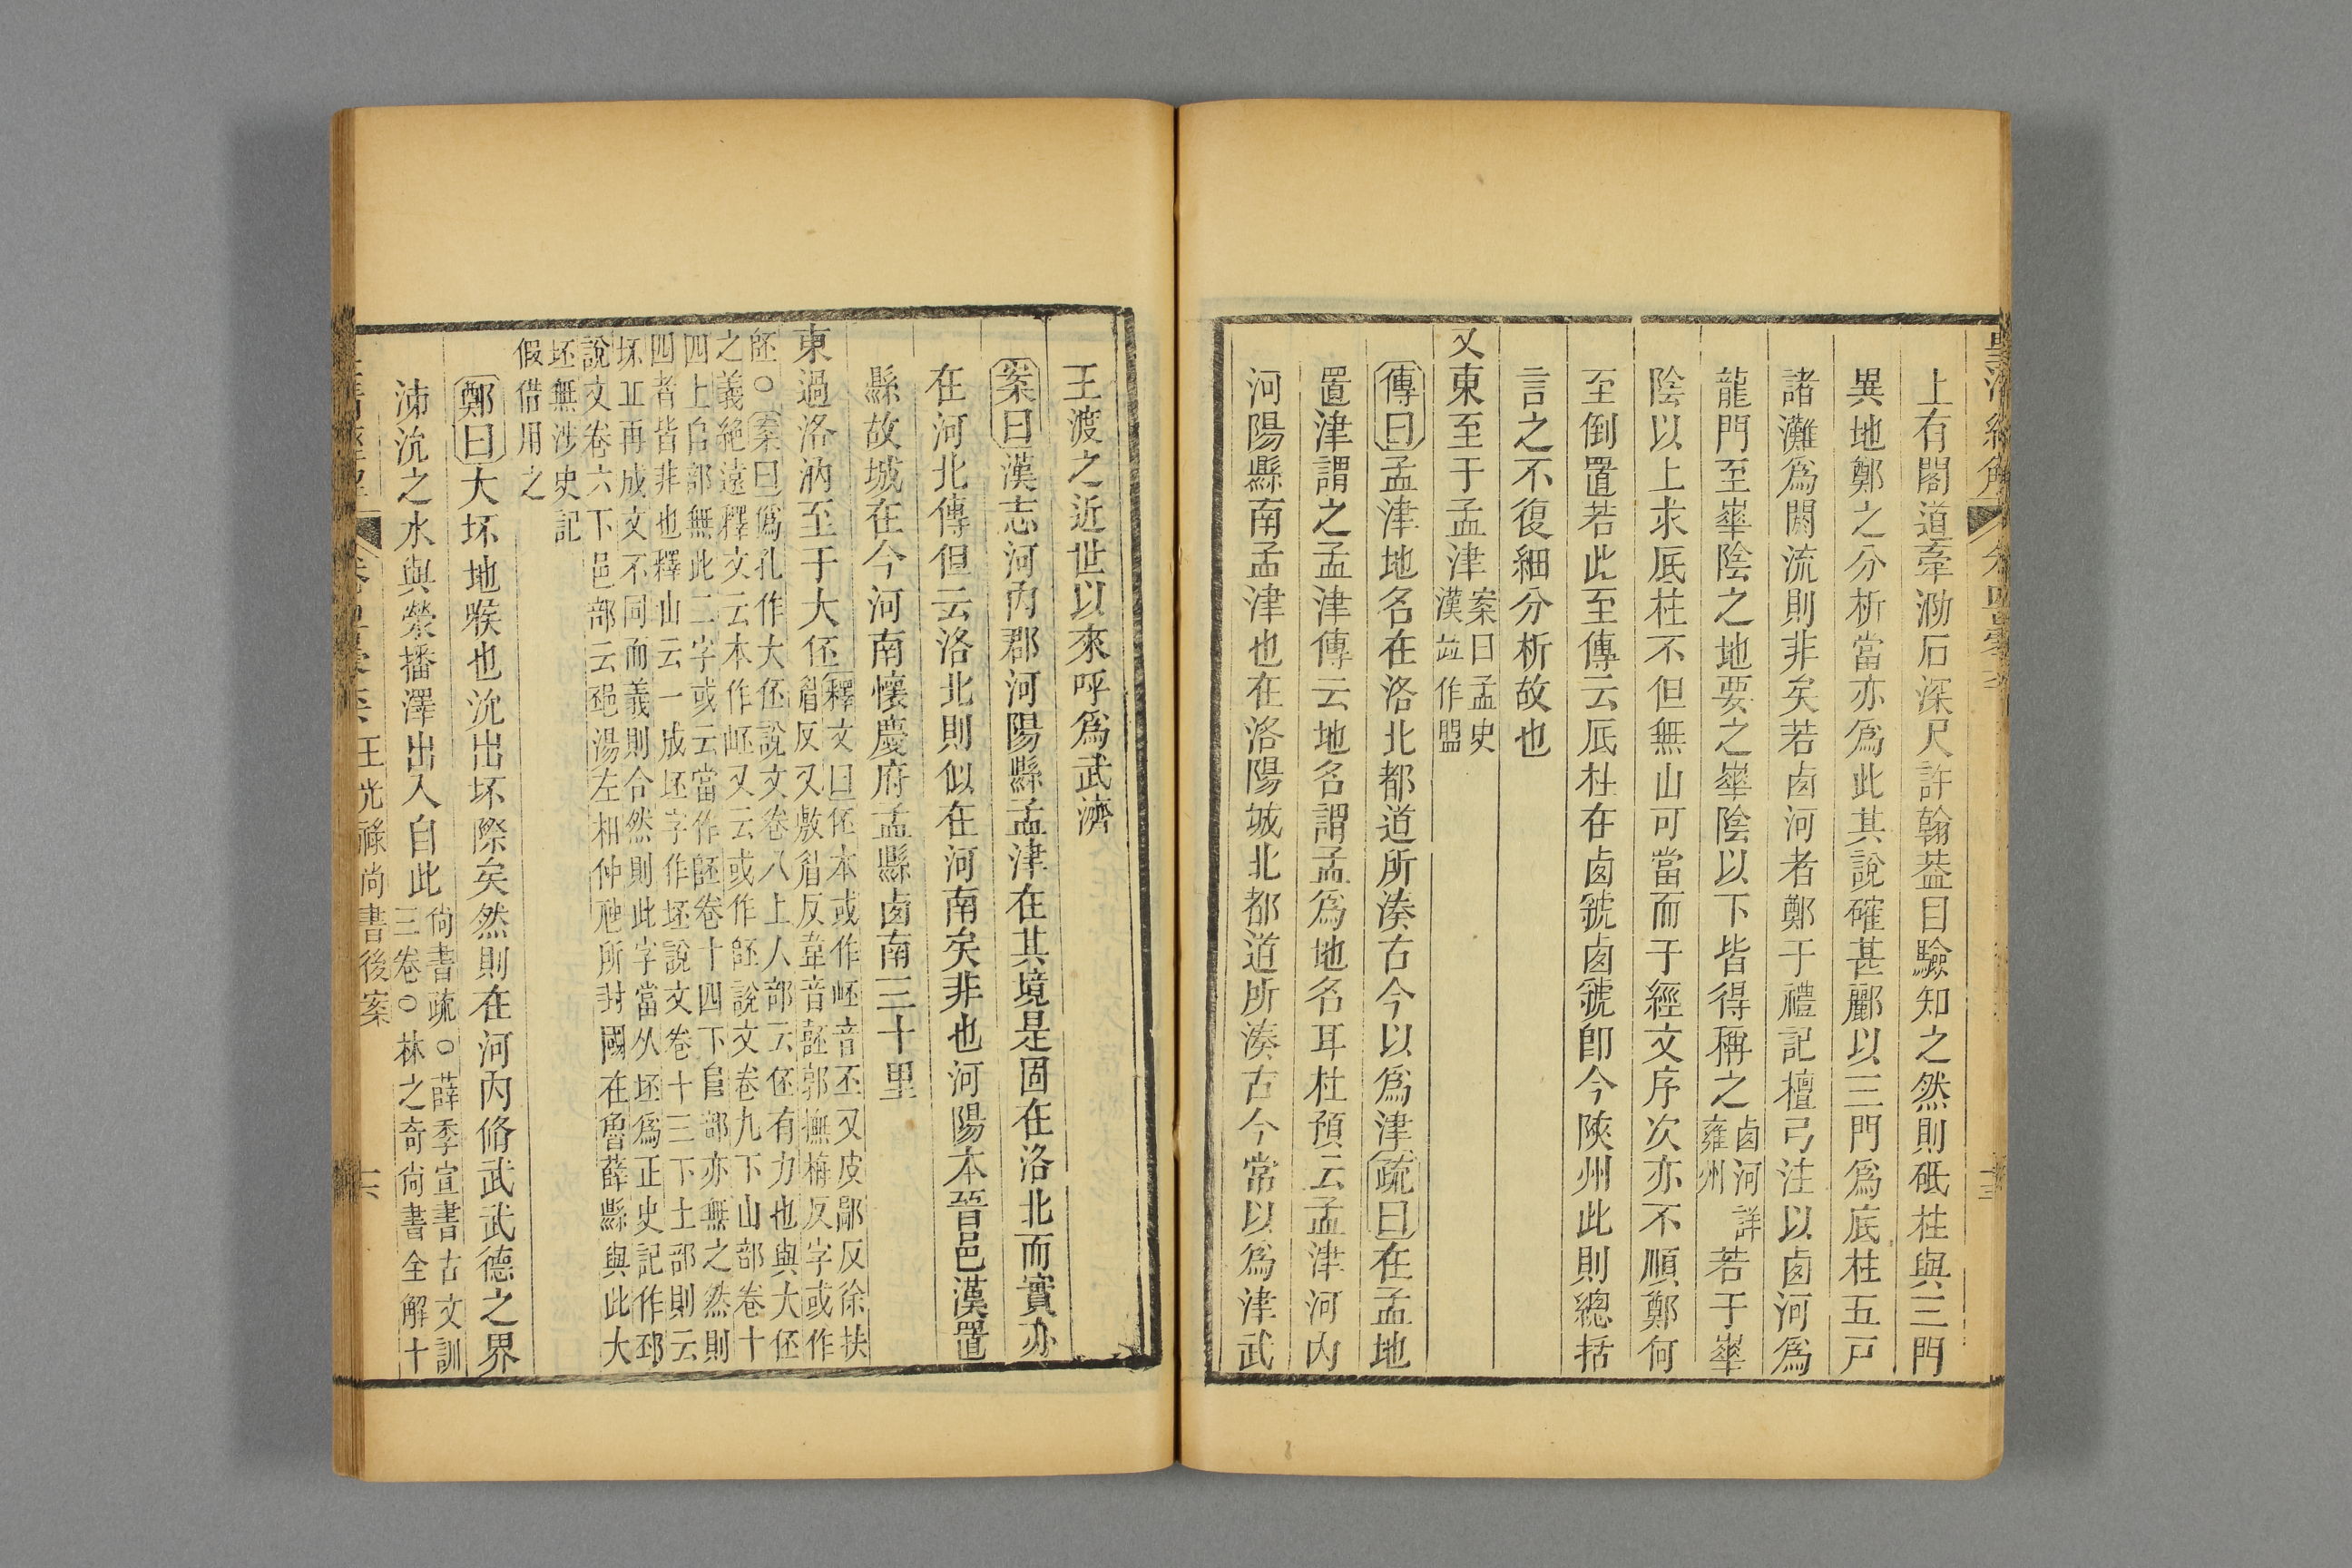 上有閣道牽泐石深尺許翰葢目驗知之然則砥柱與三門
異地鄭之分析當亦爲此其說確甚酈以三門爲底柱五戸
諸灘爲閼流則非矣若卤河者鄭于禮記檀弓注以卤河爲
龍門至崋陰之地要之崋陰以下皆得稱之卤河詳雍州若于崋
陰以上求厎柱不但無山可當而于經文序次亦不順鄭何
至倒置若此至傳云厎柱在卤虢卤虢即今陝州此則總括
言之不復細分析故也
又東至于孟津案曰孟史漢竝作盟
傳曰孟津地名在洛北都道所湊古今以爲津疏曰在孟地
置津謂之孟津傳云地名謂孟爲地名耳杜預云孟津河内
河陽縣南孟津也在洛陽城北都道所湊古今常以爲津武
王渡之近世以來呼爲武濟
案曰漢志河内郡河陽縣孟津在其境是固在洛北而實亦
在河北傳但云洛北則似在河南矣非也河陽本晉邑漢置
縣故城在今河南懷慶府孟縣卤南三十里
東過洛汭至于大伾釋文曰伾本或作岯音丕又皮鄙反徐扶
眉反又敷眉反韋音嚭郭撫梅反字或作
㔻○案曰僞孔作大伾說文卷八上人部云伾有力也與大伾
之義絶遠釋文云本作岯又云或作㔻說文卷九下山部卷十
四上𨸏部無此二字或云當作㔻卷十四下𨸏部亦無之然則
四者皆非也釋山云一成坯字作坯說文卷十三下土部則云
坏丘再成文不同而義則合然則此字當从坯爲正史記作邳
說文卷六下邑部云邳湯左相仲虺所封國在魯薛縣與此大
坯無涉史記
假借用之
鄭曰大坏地喉也沇出坏際矣然則在河内脩武武德之界
泲沇之水與滎播澤出入自此尙書疏○薛季宣書古文訓三卷○林之奇尙書全解十
王光祿尙書後案